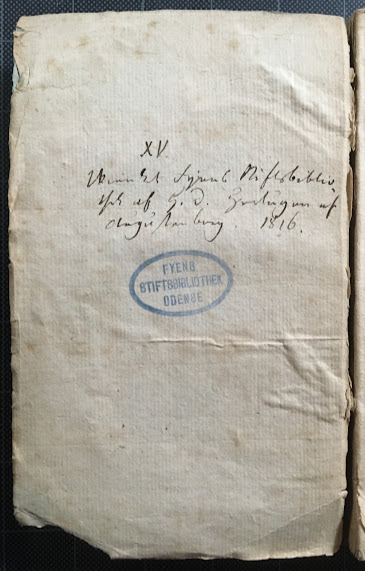 XV.
Skænket Fyens Stiftsbiblio
thek af H. D. Hertugen af
Augustenborg. 1816.
FYENS
STIFTSBIBLIOTHEK
ODENSE